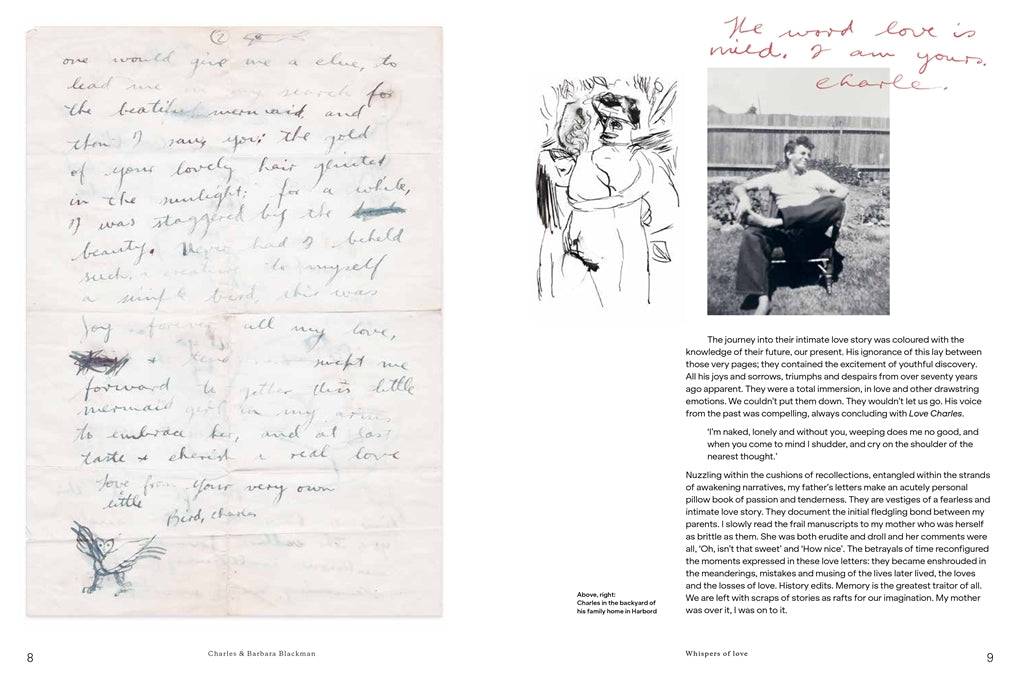 ②
one would give me a clue, to
lead me in my search for
the beatiful mermaid, and
then I saw you; the gold
of your lovely hair glinted
in the sunlight; for a while,
I was staggered by the
beauty. Never had I beheld
such a creature to myself
a simple bird, this was
Joy forever all my love,
& swept me
forward to gether this little
mermaid girl in my arms
to embrace her, and at last
taste & cherish a real love
love from your very own
little
Bird, Charles
8
Charles & Barbara Blackman
The word love is
mild. I am yours.
Charle.
The journey into their intimate love story was coloured with the
knowledge of their future, our present. His ignorance of this lay between
those very pages; they contained the excitement of youthful discovery.
All his joys and sorrows, triumphs and despairs from over seventy years
ago apparent. They were a total immersion, in love and other drawstring
emotions. We couldn't put them down. They wouldn't let us go. His voice
from the past was compelling, always concluding with Love Charles.
‘I'm naked, lonely and without you, weeping does me no good, and
when you come to mind I shudder, and cry on the shoulder of the
nearest thought.’
Nuzzling within the cushions of recollections, entangled within the strands
of awakening narratives, my father's letters make an acutely personal
pillow book of passion and tenderness. They are vestiges of a fearless and
intimate love story. They document the initial fledgling bond between my
parents. I slowly read the frail manuscripts to my mother who was herself
as brittle as them. She was both erudite and droll and her comments were
all, ‘Oh, isn't that sweet’ and ‘How nice’. The betrayals of time reconfigured
the moments expressed in these love letters: they became enshrouded in
the meanderings, mistakes and musing of the lives later lived, the loves
and the losses of love. History edits. Memory is the greatest traitor of all.
We are left with scraps of stories as rafts for our imagination. My mother
was over it, I was on to it.
Above, right:
Charles in the backyard of
his family home in Harbord
Whispers of love
9